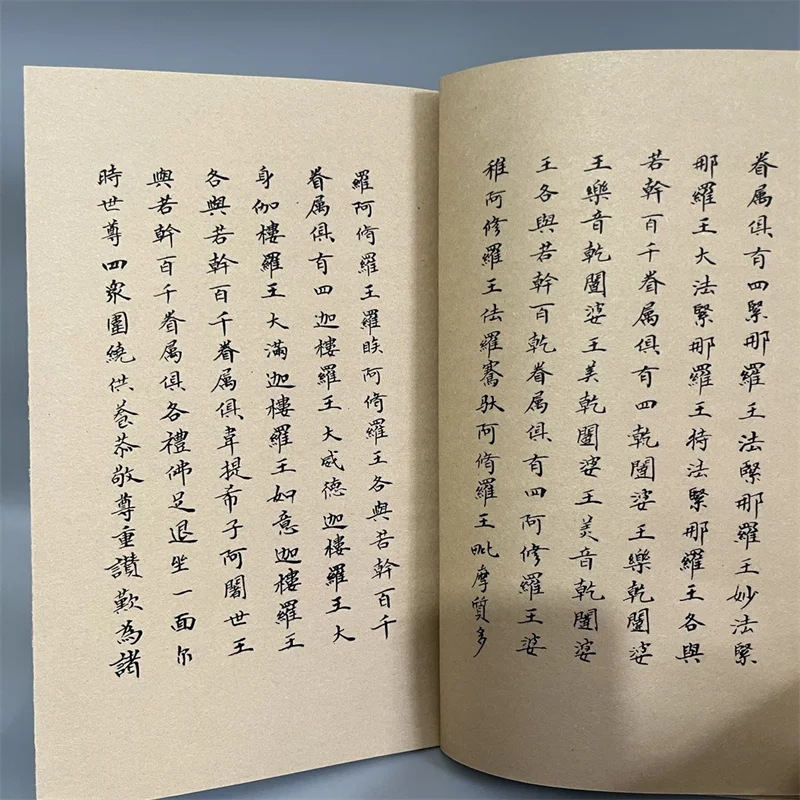 眷属俱有四緊那羅王法緊那羅王妙法緊
那羅王大法緊那羅王持法緊那羅王各與
若幹百千眷属俱有四乾闥婆王樂乾闥婆
王樂音乾闥婆王美乾闥婆王美音乾闥婆
王各與若幹百乾眷属俱有四阿修羅王婆
稚阿修羅王佉羅騫馱阿脩羅王毗摩質多
羅阿脩羅王羅睺阿脩羅王各與若幹百千
眷属俱有四迦樓羅王大威德迦樓羅王大
身伽樓羅王大滿迦樓羅王如意迦樓羅王
各與若幹百千眷属俱韋提希子阿闍世王
與若幹百千眷属俱各禮佛足退坐一面尔
時世尊四衆圍繞供養恭敬尊重讃歎為諸